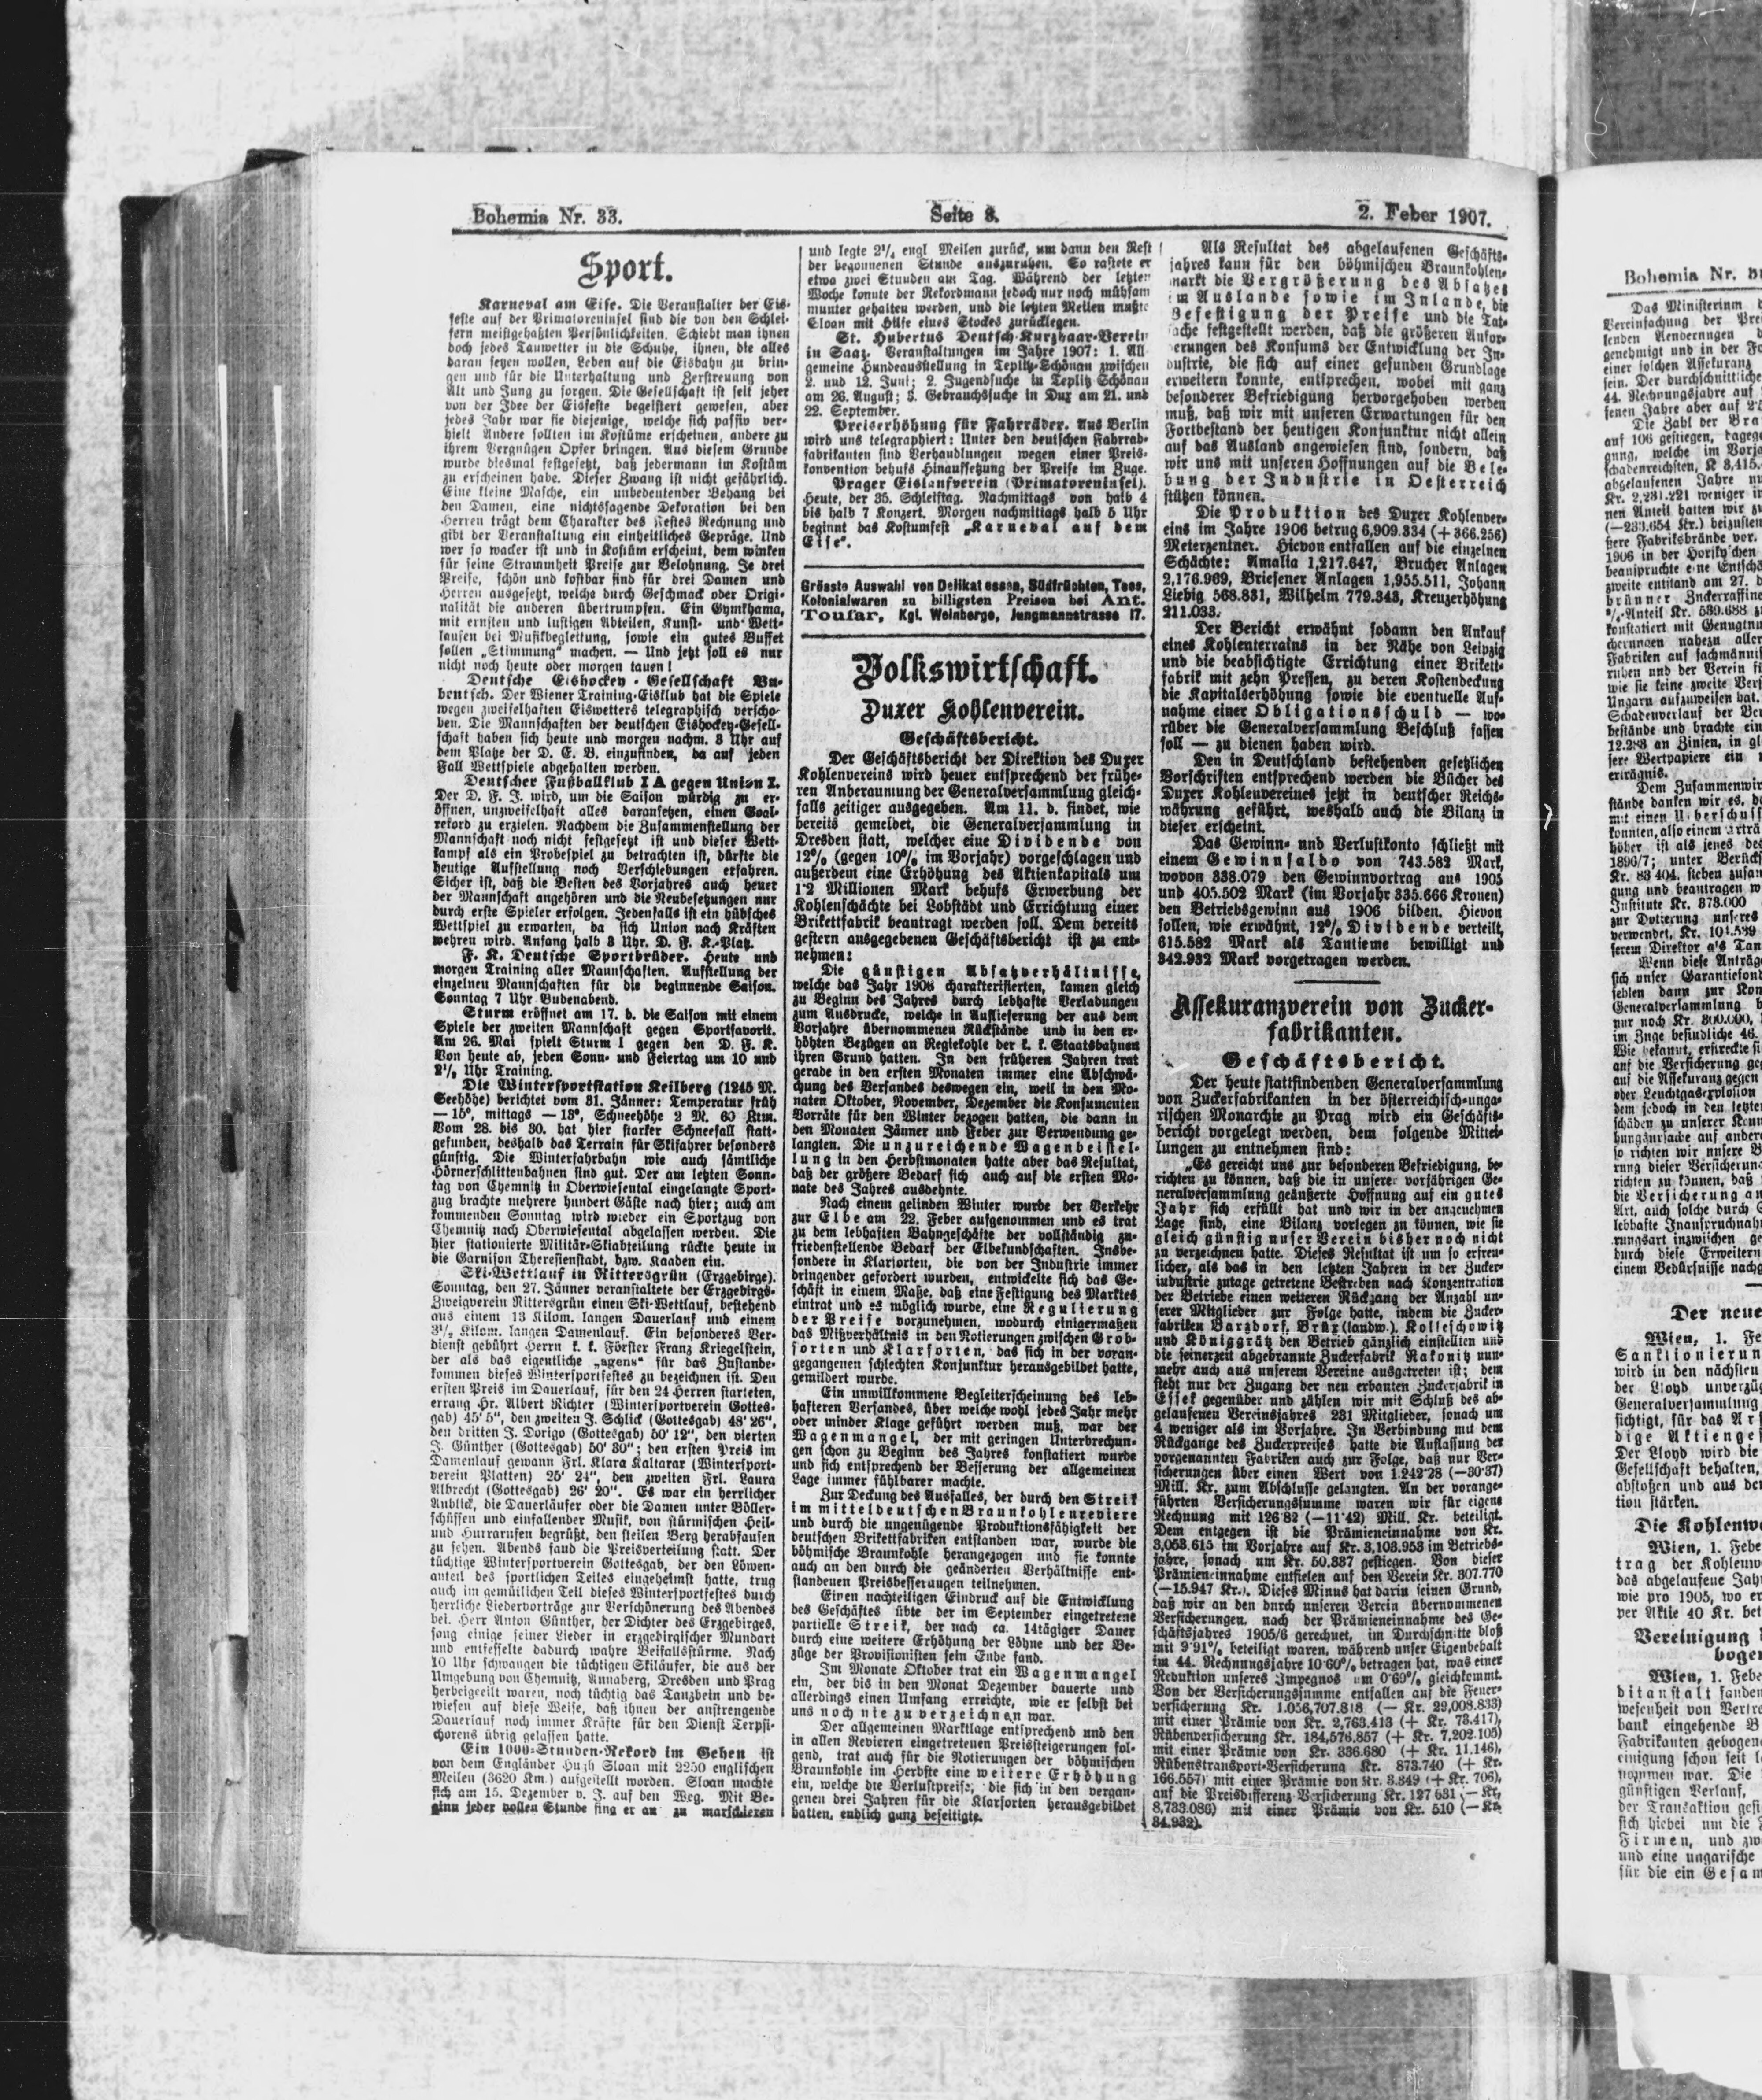 Bohemia Nr. 33. Seite 8. 2. Feber 1907.
Sport.
Karneval am Eise. Die Veranstalter der Eis-
feste auf der Primatoreninsel sind die von den Schlei-
fern meistgehaßten Persönlichkeiten. Schiebt man ihnen
doch jedes Tauwetter in die Schuhe, ihnen, die alles
daran setzen wollen, Leben auf die Eisbahn zu brin-
gen und für die Unterhaltung und Zerstreuung von
Alt und Jung zu sorgen. Die Gesellschaft ist seit jeher
von der Idee der Eisfeste begeistert gewesen, aber
jedes Jahr war sie diejenige, welche sich passiv ver-
hielt Andere sollten im Kostüme erscheinen, andere zu
ihrem Vergnügen Opfer bringen. Aus diesem Grunde
wurde diesmal festgesetzt, daß jedermann im Kostüm
zu erscheinen habe. Dieser Zwang ist nicht gefährlich.
Eine kleine Masche, ein unbedeutender Behang bei
den Damen, eine nichtssagende Dekoration bei den
Herren trägt dem Charakter des Festes Rechnung und
gibt der Veranstaltung ein einheitliches Gepräge. Und
wer so wacker ist und in Kostüm erscheint, dem winken
für seine Strammheit Preise zur Belohnung. Je drei
Preise, schön und kostbar sind für drei Damen und
Herren ausgesetzt, welche durch Geschmack oder Origi-
nalität die anderen übertrumpfen. Ein Gymkhama,
mit ernsten und lustigen Abteilen, Kunst- und Wett-
laufen bei Musikbegleitung, sowie ein gutes Buffet
sollen „Stimmung“ machen. — Und jetzt soll es nur
nicht noch heute oder morgen tauen!
Deutsche Eishockey-Gesellschaft Bu-
bentsch. Der Wiener Training-Eisklub hat die Spiele
wegen zweifelhaften Eiswetters telegraphisch verscho-
ben. Die Mannschaften der deutschen Eishockey-Gesell-
schaft haben sich heute und morgen nachm. 3 Uhr auf
dem Platze der D. E. B. einzufinden, da auf jeden
Fall Wettspiele abgehalten werden.
Deutscher Fußballklub I A gegen Union I.
Der D. F. J. wird, um die Saison würdig zu er-
öffnen, unzweifelhaft alles daransetzen, einen Goal-
rekord zu erzielen. Nachdem die Zusammenstellung der
Mannschaft noch nicht festgesetzt ist und dieser Wett-
kampf als ein Probespiel zu betrachten ist, dürfte die
heutige Aufstellung noch Verschiebungen erfahren.
Sicher ist, daß die Besten des Vorjahres auch heuer
der Mannschaft angehören und die Neubesetzungen nur
durch erste Spieler erfolgen. Jedenfalls ist ein hübsches
Wettspiel zu erwarten, da sich Union nach Kräften
wehren wird. Anfang halb 3 Uhr. D. F. K.-Platz.
F. K. Deutsche Sportbrüder. Heute und
morgen Training aller Mannschaften. Aufstellung der
einzelnen Mannschaften für die beginnende Saison.
Sonntag 7 Uhr Budenabend.
Sturm eröffnet am 17. d. die Saison mit einem
Spiele der zweiten Mannschaft gegen Sportfavorit.
Am 26. Mai spielt Sturm I gegen den D. F. K.
Von heute ab, jeden Sonn- und Feiertag um 10 und
2½ Uhr Training.
Die Wintersportstation Keilberg (1245 M.
Seehöhe) berichtet vom 31. Jänner: Temperatur früh
— 15°, mittags — 13°, Schneehöhe 2 M. 60 Ztm.
Vom 28. bis 30. hat hier starker Schneefall statt-
gefunden, deshalb das Terrain für Skifahrer besonders
günstig. Die Winterfahrbahn wie auch sämtliche
Hörnerschlittenbahnen sind gut. Der am letzten Sonn-
tag von Chemnitz in Oberwiesental eingelangte Sport-
zug brachte mehrere hundert Gäste nach hier; auch am
kommenden Sonntag wird wieder ein Sportzug von
Chemnitz nach Oberwiesental abgelassen werden. Die
hier stationierte Militär-Skiabteilung rückte heute in
die Garnison Theresienstadt, bzw. Kaaden ein.
Ski-Wettlauf in Rittersgrün (Erzgebirge).
Sonntag, den 27. Jänner veranstaltete der Erzgebirgs-
Zweigverein Rittersgrün einen Ski-Wettlauf, bestehend
aus einem 13 Kilom. langen Dauerlauf und einem
3½ Kilom. langen Damenlauf. Ein besonderes Ver-
dienst gebührt Herrn k. k. Förster Franz Kriegelstein,
der als das eigentliche „agens“ für das Zustande-
kommen dieses Wintersportfestes zu bezeichnen ist. Den
ersten Preis im Dauerlauf, für den 24 Herren starteten,
errang Hr. Albert Richter (Wintersportverein Gottes-
gab) 45' 5", den zweiten J. Schlick (Gottesgab) 48' 26",
den dritten J. Dorigo (Gottesgab) 50' 12", den vierten
J. Günther (Gottesgab) 50' 30"; den ersten Preis im
Damenlauf gewann Frl. Klara Kaltarar (Wintersport-
verein Platten) 25' 24", den zweiten Frl. Laura
Albrecht (Gottesgab) 26' 20". Es war ein herrlicher
Anblick, die Dauerläufer oder die Damen unter Böller-
schüssen und einfallender Musik, von stürmischen Heil-
und Hurrarufen begrüßt, den steilen Berg herabsausen
zu sehen. Abends fand die Preisverteilung statt. Der
tüchtige Wintersportverein Gottesgab, der den Löwen-
anteil des sportlichen Teiles eingeheimst hatte, trug
auch im gemütlichen Teil dieses Wintersportfestes durch
herrliche Liedervorträge zur Verschönerung des Abendes
bei. Herr Anton Günther, der Dichter des Erzgebirges,
sang einige seiner Lieder in erzgebirgischer Mundart
und entfesselte dadurch wahre Beifallsstürme. Nach
10 Uhr schwangen die tüchtigen Skiläufer, die aus der
Umgebung von Chemnitz, Annaberg, Dresden und Prag
herbeigeeilt waren, noch tüchtig das Tanzbein und be-
wiesen auf diese Weise, daß ihnen der anstrengende
Dauerlauf noch immer Kräfte für den Dienst Terpsi-
chorens übrig gelassen hatte.
Ein 1000-Stunden-Rekord im Gehen ist
von dem Engländer Hugh Sloan mit 2250 englischen
Meilen (3620 Km.) aufgestellt worden. Sloan machte
sich am 15. Dezember v. J. auf den Weg. Mit Be-
ginn jeder vollen Stunde fing er an zu marschieren
und legte 2¼ engl Meilen zurück, um dann den Rest
der begonnenen Stunde auszuruhen. So rastete er
etwa zwei Stunden am Tag. Während der letzten
Woche konnte der Rekordmann jedoch nur noch mühsam
munter gehalten werden, und die letzten Meilen mußte
Sloan mit Hilfe eines Stockes zurücklegen.
St. Hubertus Deutsch-Kurzhaar-Verein
in Saaz. Veranstaltungen im Jahre 1907: 1. All
gemeine Hundeausstellung in Teplitz-Schönau zwischen
2. und 12. Juni; 2. Jugendsuche in Teplitz Schönau
am 26. August; 3. Gebrauchssuche in Dux am 21. und
22. September.
Preiserhöhung für Fahrräder. Aus Berlin
wird uns telegraphiert: Unter den deutschen Fahrrad-
fabrikanten sind Verhandlungen wegen einer Preis-
konvention behufs Hinaufsetzung der Preise im Zuge.
Prager Eislaufverein (Primatoreninsel).
Heute, der 35. Schleiftag. Nachmittags von halb 4
bis halb 7 Konzert. Morgen nachmittags halb 5 Uhr
beginnt das Kostumfest „Karneval auf dem
Eise“.
Grösste Auswahl von Delikatessen, Südfrüchten, Tees,
Kolonialwaren zu billigsten Preisen bei Ant.
Toufar, Kgl. Weinberge, Jungmannstrasse 17.
Volkswirtschaft.
Duxer Kohlenverein.
Geschäftsbericht.
Der Geschäftsbericht der Direktion des Duxer
Kohlenvereins wird heuer entsprechend der frühe-
ren Anberaumung der Generalversammlung gleich-
falls zeitiger ausgegeben. Am 11. d. findet, wie
bereits gemeldet, die Generalversammlung in
Dresden statt, welcher eine Dividende von
12% (gegen 10% im Vorjahr) vorgeschlagen und
außerdem eine Erhöhung des Aktienkapitals um
1·2 Millionen Mark behufs Erwerbung der
Kohlenschächte bei Lobstädt und Errichtung einer
Brikettfabrik beantragt werden soll. Dem bereits
gestern ausgegebenen Geschäftsbericht ist zu ent-
nehmen:
Die günstigen Absatzverhältnisse,
welche das Jahr 1906 charakterisierten, kamen gleich
zu Beginn des Jahres durch lebhafte Verladungen
zum Ausdrucke, welche in Auslieferung der aus dem
Vorjahre übernommenen Rückstände und in den er-
höhten Bezügen an Regiekohle der k. k. Staatsbahnen
ihren Grund hatten. In den früheren Jahren trat
gerade in den ersten Monaten immer eine Abschwä-
chung des Versandes deswegen ein, weil in den Mo-
naten Oktober, November, Dezember die Konsumenten
Vorräte für den Winter bezogen hatten, die dann in
den Monaten Jänner und Feber zur Verwendung ge-
langten. Die unzureichende Wagenbeistel-
lung in den Herbstmonaten hatte aber das Resultat,
daß der größere Bedarf sich auch auf die ersten Mo-
nate des Jahres ausdehnte.
Nach einem gelinden Winter wurde der Verkehr
zur Elbe am 22. Feber aufgenommen und es trat
zu dem lebhaften Bahngeschäfte der vollständig zu-
friedenstellende Bedarf der Elbekundschaften. Insbe-
sondere in Klarsorten, die von der Industrie immer
bringender gefordert wurden, entwickelte sich das Ge-
schäft in einem Maße, daß eine Festigung des Marktes
eintrat und es möglich wurde, eine Regulierung
der Preise vorzunehmen, wodurch einigermaßen
das Mißverhältnis in den Notierungen zwischen Grob-
sorten und Klarsorten, das sich in der voran-
gegangenen schlechten Konjunktur herausgebildet hatte,
gemildert wurde.
Ein unwillkommene Begleiterscheinung des leb-
hafteren Versandes, über welche wohl jedes Jahr mehr
oder minder Klage geführt werden muß, war der
Wagenmangel, der mit geringen Unterbrechun-
gen schon zu Beginn des Jahres konstatiert wurde
und sich entsprechend der Besserung der allgemeinen
Lage immer fühlbarer machte.
Zur Deckung des Ausfalles, der durch den Streik
im mitteldeutschen Braunkohlenreviere
und durch die ungenügende Produktionsfähigkeit der
deutschen Brikettfabriken entstanden war, wurde die
böhmische Braunkohle herangezogen und sie konnte
auch an den durch die geänderten Verhältnisse ent-
standenen Preisbesserungen teilnehmen.
Einen nachteiligen Eindruck auf die Entwicklung
des Geschäftes übte der im September eingetretene
partielle Streik, der nach ca. 14tägiger Dauer
durch eine weitere Erhöhung der Löhne und der Be-
züge der Provisionisten sein Ende fand.
Im Monate Oktober trat ein Wagenmangel
ein, der bis in den Monat Dezember dauerte und
allerdings einen Umfang erreichte, wie er selbst bei
uns noch nie zu verzeichnen war.
Der allgemeinen Marktlage entsprechend und den
in allen Revieren eingetretenen Preissteigerungen fol-
gend, trat auch für die Notierungen der böhmischen
Braunkohle im Herbste eine weitere Erhöhung
ein, welche die Verlustpreise, die sich in den vergan-
genen drei Jahren für die Klarsorten herausgebildet
hatten, endlich ganz beseitigte.
Als Resultat des abgelaufenen Geschäfts-
jahres kann für den böhmischen Braunkohlen-
markt die Vergrößerung des Absatzes
im Auslande sowie im Inlande, die
Befestigung der Preise und die Tat-
sache festgestellt werden, daß die größeren Anfor-
derungen des Konsums der Entwicklung der In-
dustrie, die sich auf einer gesunden Grundlage
erweitern konnte, entsprechen, wobei mit ganz
besonderer Befriedigung hervorgehoben werden
muß, daß wir mit unseren Erwartungen für den
Fortbestand der heutigen Konjunktur nicht allein
auf das Ausland angewiesen sind, sondern, daß
wir uns mit unseren Hoffnungen auf die Bele-
bung der Industrie in Oesterreich
stützen können.
Die Produktion des Duxer Kohlenver-
eins im Jahre 1906 betrug 6,909.334 (+ 366.256)
Meterzentner. Hievon entfallen auf die einzelnen
Schächte: Amalia 1,217.647, Brucher Anlagen
2,176.969, Briesener Anlagen 1,955.511, Johann
Liebig 568.831, Wilhelm 779.343, Kreuzerhöhung
211.033.
Der Bericht erwähnt sodann den Ankauf
eines Kohlenterrains in der Nähe von Leipzig
und die beabsichtigte Errichtung einer Brikett-
fabrik mit zehn Pressen, zu deren Kostendeckung
die Kapitalserhöhung sowie die eventuelle Auf-
nahme einer Obligationsschuld — wo-
rüber die Generalversammlung Beschluß fassen
soll — zu dienen haben wird.
Den in Deutschland bestehenden gesetzlichen
Vorschriften entsprechend werden die Bücher des
Duxer Kohlenvereines jetzt in deutscher Reichs-
währung geführt, weshalb auch die Bilanz in
dieser erscheint.
Das Gewinn- und Verlustkonto schließt mit
einem Gewinnsaldo von 743.582 Mark,
wovon 338.079 den Gewinnvortrag aus 1905
und 405.502 Mark (im Vorjahr 335.666 Kronen)
den Betriebsgewinn aus 1906 bilden. Hievon
sollen, wie erwähnt, 12% Dividende verteilt,
615.582 Mark als Tantieme bewilligt und
342.932 Mark vorgetragen werden.
Assekuranzverein von Zucker-
fabrikanten.
Geschäftsbericht.
Der heute stattfindenden Generalversammlung
von Zuckerfabrikanten in der österreichisch-unga-
rischen Monarchie zu Prag wird ein Geschäfts-
bericht vorgelegt werden, dem folgende Mittei-
lungen zu entnehmen sind:
„Es gereicht uns zur besonderen Befriedigung, be-
richten zu können, daß die in unserer vorjährigen Ge-
neralversammlung geäußerte Hoffnung auf ein gutes
Jahr sich erfüllt hat und wir in der angenehmen
Lage sind, eine Bilanz vorlegen zu können, wie sie
gleich günstig unser Verein bisher noch nicht
zu verzeichnen hatte. Dieses Resultat ist um so erfreu-
licher, als das in den letzten Jahren in der Zucker-
industrie zutage getretene Bestreben nach Konzentration
der Betriebe einen weiteren Rückgang der Anzahl un-
serer Mitglieder zur Folge hatte, indem die Zucker-
fabriken Barzdorf, Brüx (landw.), Kolleschowitz
und Königgrätz den Betrieb gänzlich einstellten und
die seinerzeit abgebrannte Zuckerfabrik Rakonitz nun-
mehr auch aus unserem Vereine ausgetreten ist; dem
steht nur der Zugang der neu erbauten Zuckerfabrik in
Essek gegenüber und zählen wir mit Schluß des ab-
gelaufenen Vereinsjahres 231 Mitglieder, sonach um
4 weniger als im Vorjahre. In Verbindung mit dem
Rückgange des Zuckerpreises hatte die Auflassung der
vorgenannten Fabriken auch zur Folge, daß nur Ver-
sicherungen über einen Wert von 1.242·28 (—30·37)
Mill. Kr. zum Abschlusse gelangten. An der vorange-
führten Versicherungssumme waren wir für eigene
Rechnung mit 126·82 (—11·42) Mill. Kr. beteiligt.
Dem entgegen ist die Prämieneinnahme von Kr.
3,053.615 im Vorjahre auf Kr. 3,103.953 im Betriebs-
jahre, sonach um Kr. 50.337 gestiegen. Von dieser
Prämieneinnahme entfielen auf den Verein Kr. 307.770
(—15.947 Kr.). Dieses Minus hat darin seinen Grund,
daß wir an den durch unseren Verein übernommenen
Versicherungen, nach der Prämieneinnahme des Ge-
schäftsjahres 1905/6 gerechnet, im Durchschnitte bloß
mit 9·91% beteiligt waren, während unser Eigenbehalt
im 44. Rechnungsjahre 10·60% betragen hat, was einer
Reduktion unseres Impegnos um 0·69% gleichkommt.
Von der Versicherungssumme entfallen auf die Feuer-
versicherung Kr. 1.056,707.818 (— Kr. 29,008.833)
mit einer Prämie von Kr. 2,763.413 (+ Kr. 73.417),
Rübenversicherung Kr. 184,576.857 (+ Kr. 7,202.105)
mit einer Prämie von Kr. 336.680 (+ Kr. 11.146),
Rübenstransport-Versicherung Kr. 873.740 (+ Kr.
166.557) mit einer Prämie von Kr. 3.349 (+ Kr. 706),
auf die Preisdifferenz-Versicherung Kr. 127 631 (— Kr.
8,733.086) mit einer Prämie von Kr. 510 (— Kr.
34.932).
Bohemia Nr.
Das Ministerium
Vereinfachung der
lenden Aenderungen
genehmigt und in der
einer solchen Assekuranz
sein. Der durchschnittliche
44. Rechnungsjahre auf
senen Jahre aber auf
Die Zahl der
auf 106 gestiegen,
gung, welche im
schadenreichsten, K 8,415.
abgelaufenen Jahre
Kr. 2,231.221 weniger
nen Anteil hatten wir
(—233.654 Kr.)
ßere Fabriksbrände vor.
1906 in der
beanspruchte eine
zweite entstand am 27.
brünner
Anteil Kr. 539.688
konstatiert mit
cherungen nahezu
Fabriken auf
ruhen und der Verein
wie sie keine zweite
Ungarn aufzuweisen hat.
Schadenverlauf der
bestände und brachte
12.283 an Zinsen, in
sere Wertpapiere ein
erträgnis.
Dem
stände danken wir es,
mit einen
konnten, also einem
höher ist als jenes des
1896/7; unter
Kr. 83 404, stehen
gung und beantragen
Institute Kr. 873.000
zur Dotierung unseres
verwendet, Kr. 101.539
serem Direktor als
Wenn diese
sich unser
fehlen dann zur
Generalversammlung
nur noch Kr. 300.000,
im Zuge befindliche 46.
Wie bekannt, erstreckte
auf die Versicherung
auf die Assekuranz gegen
oder Leuchtgasexplosion
dem jedoch in den
schäden zu unserer
hungsursache auf
so richten wir unsere
rung dieser
richten zu können, daß
die Versicherung
Art, auch solche durch
lebhafte
rungsart inzwischen
durch diese
einem Bedürfnisse
Der neue
Wien, 1.
Sanktionierung
wird in den nächsten
der Lloyd
Generalversammlung
sichtigt, für das
dige
Der Lloyd wird die
Gesellschaft behalten,
abstoßen und aus
tion stärken.
Die
Wien, 1.
trag der
das abgelaufene
wie pro 1905, wo
per Aktie 40 Kr.
Vereinigung
Wien, 1.
ditanstalt fanden
wesenheit von
bank eingehende
Fabrikanten
einigung schon seit
nommen war. Die
günstigen Verlauf,
der Transaktion
sich hiebei um die
Firmen, und
und eine ungarische
für die ein